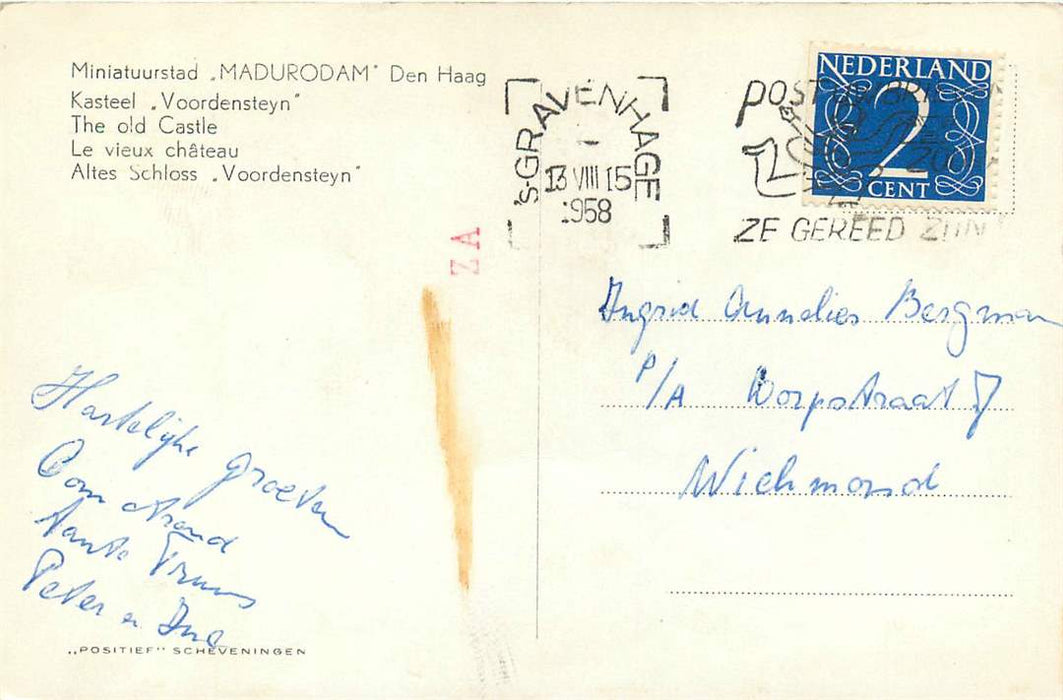 Miniatuurstad „MADURODAM" Den Haag
Kasteel „Voordensteyn"
The old Castle
Le vieux château
Altes Schloss „Voordensteyn"
's-GRAVENHAGE
-
13 VIII 15
1958
POST
ZE GEREED ZIJN
NEDERLAND
2
CENT
ZA
Ingrid Annelies Bergman
P/A Dorpstraat 7
Wichmond
Hartelijke groeten
Oom Arend
tante Truus
Peter en Ina
„POSITIEF" SCHEVENINGEN